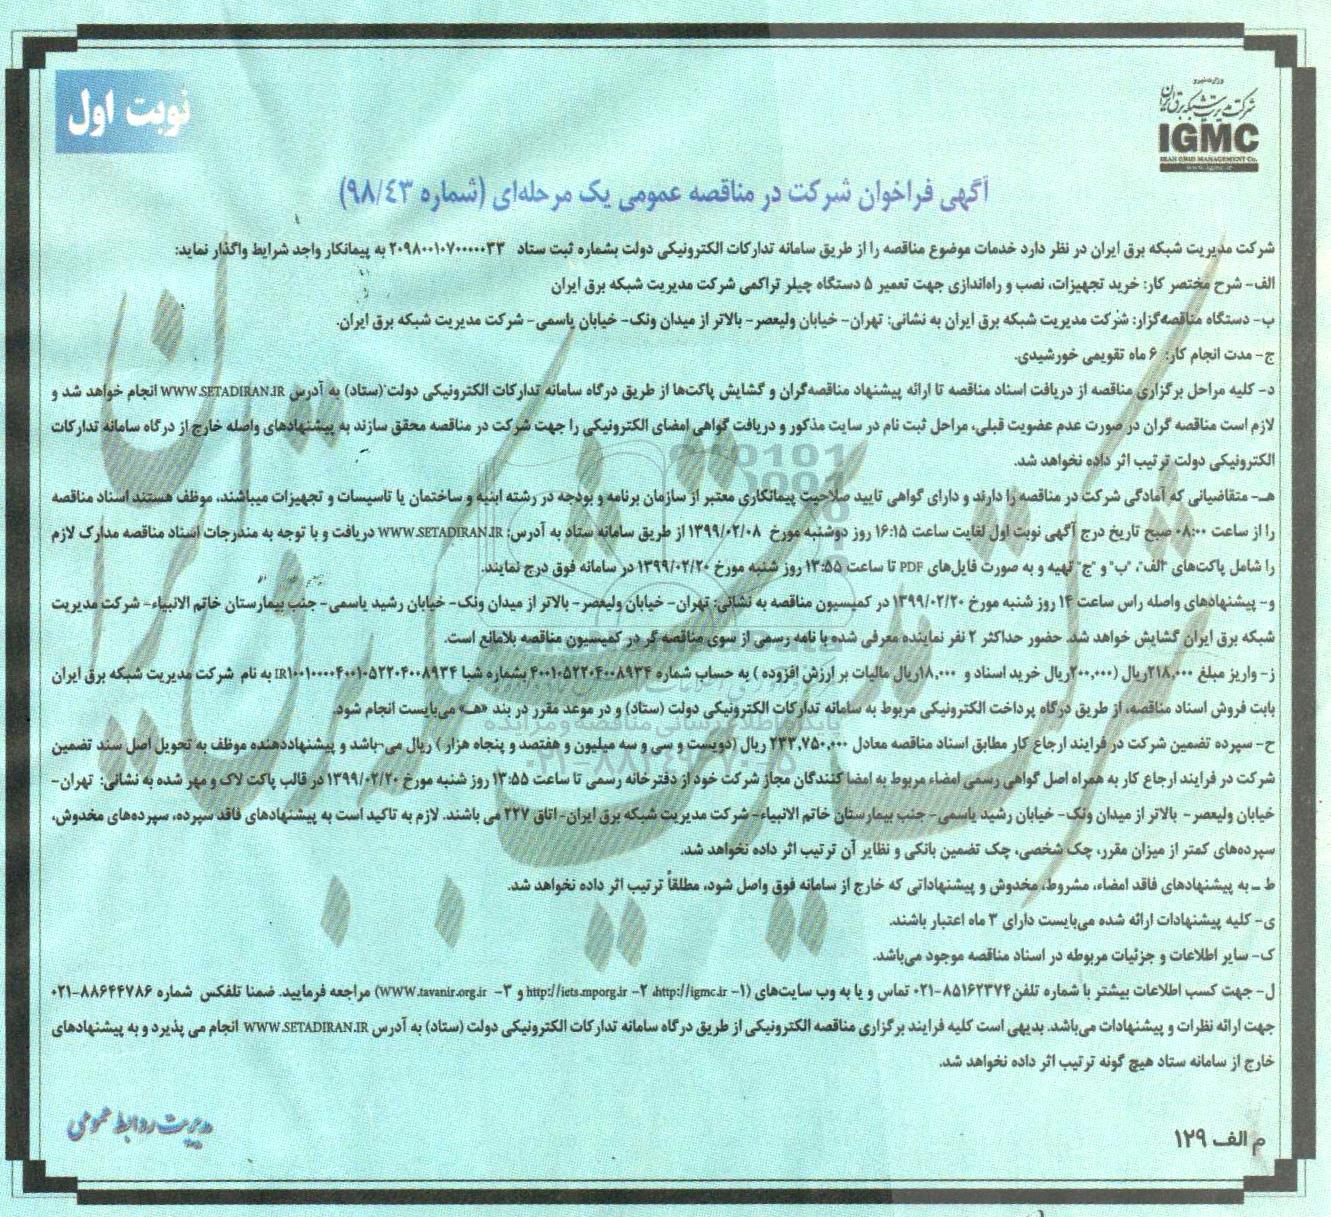 وزارت نیرو
شرکت مدیریت شبکه برق ایران
IGMC
IRAN GRID MANAGEMENT Co.
www.igmc.ir
نوبت اول
آگهی فراخوان شرکت در مناقصه عمومی یک مرحله‌ای (شماره ۹۸/۴۳)
شرکت مدیریت شبکه برق ایران در نظر دارد خدمات موضوع مناقصه را از طریق سامانه تدارکات الکترونیکی دولت بشماره ثبت ستاد ۲۰۹۸۰۰۱۰۷۰۰۰۰۰۳۳ به پیمانکار واجد شرایط واگذار نماید:
الف- شرح مختصر کار: خرید تجهیزات، نصب و راه‌اندازی جهت تعمیر ۵ دستگاه چیلر تراکمی شرکت مدیریت شبکه برق ایران
ب- دستگاه مناقصه‌گزار: شرکت مدیریت شبکه برق ایران به نشانی: تهران- خیابان ولیعصر- بالاتر از میدان ونک- خیابان یاسمی- شرکت مدیریت شبکه برق ایران.
ج- مدت انجام کار: ۶ ماه تقویمی خورشیدی.
د- کلیه مراحل برگزاری مناقصه از دریافت اسناد مناقصه تا ارائه پیشنهاد مناقصه‌گران و گشایش پاکت‌ها از طریق درگاه سامانه تدارکات الکترونیکی دولت (ستاد) به آدرس WWW.SETADIRAN.IR انجام خواهد شد و
لازم است مناقصه گران در صورت عدم عضویت قبلی، مراحل ثبت نام در سایت مذکور و دریافت گواهی امضای الکترونیکی را جهت شرکت در مناقصه محقق سازند به پیشنهادهای واصله خارج از درگاه سامانه تدارکات
الکترونیکی دولت ترتیب اثر داده نخواهد شد.
هـ- متقاضیانی که آمادگی شرکت در مناقصه را دارند و دارای گواهی تایید صلاحیت پیمانکاری معتبر از سازمان برنامه و بودجه در رشته ابنیه و ساختمان یا تاسیسات و تجهیزات میباشند، موظف هستند اسناد مناقصه
را از ساعت ۰۸:۰۰ صبح تاریخ درج آگهی نوبت اول لغایت ساعت ۱۶:۱۵ روز دوشنبه مورخ ۱۳۹۹/۰۲/۰۸ از طریق سامانه ستاد به آدرس: WWW.SETADIRAN.IR دریافت و با توجه به مندرجات اسناد مناقصه مدارک لازم
را شامل پاکت‌های "الف"، "ب" و "ج" تهیه و به صورت فایل‌های PDF تا ساعت ۱۳:۵۵ روز شنبه مورخ ۱۳۹۹/۰۲/۲۰ در سامانه فوق درج نمایند.
و- پیشنهادهای واصله راس ساعت ۱۴ روز شنبه مورخ ۱۳۹۹/۰۲/۲۰ در کمیسیون مناقصه به نشانی: تهران- خیابان ولیعصر- بالاتر از میدان ونک- خیابان رشید یاسمی- جنب بیمارستان خاتم الانبیاء- شرکت مدیریت
شبکه برق ایران گشایش خواهد شد. حضور حداکثر ۲ نفر نماینده معرفی شده با نامه رسمی از سوی مناقصه گر در کمیسیون مناقصه بلامانع است.
ز- واریز مبلغ ۲۱۸,۰۰۰ریال (۲۰۰,۰۰۰ریال خرید اسناد و ۱۸,۰۰۰ریال مالیات بر ارزش افزوده ) به حساب شماره ۴۰۰۱۰۵۲۲۰۴۰۰۸۹۳۴ بشماره شبا IR۱۰۰۱۰۰۰۰۴۰۰۱۰۵۲۲۰۴۰۰۸۹۳۴ به نام شرکت مدیریت شبکه برق ایران
بابت فروش اسناد مناقصه، از طریق درگاه پرداخت الکترونیکی مربوط به سامانه تدارکات الکترونیکی دولت (ستاد) و در موعد مقرر در بند «هـ» می‌بایست انجام شود.
ح- سپرده تضمین شرکت در فرایند ارجاع کار مطابق اسناد مناقصه معادل ۲۳۳,۷۵۰,۰۰۰ ریال (دویست و سی و سه میلیون و هفتصد و پنجاه هزار ) ریال می-باشد و پیشنهاددهنده موظف به تحویل اصل سند تضمین
شرکت در فرایند ارجاع کار به همراه اصل گواهی رسمی امضاء مربوط به امضا کنندگان مجاز شرکت خود از دفترخانه رسمی تا ساعت ۱۳:۵۵ روز شنبه مورخ ۱۳۹۹/۰۲/۲۰ در قالب پاکت لاک و مهر شده به نشانی: تهران-
خیابان ولیعصر- بالاتر از میدان ونک- خیابان رشید یاسمی- جنب بیمارستان خاتم الانبیاء- شرکت مدیریت شبکه برق ایران- اتاق ۲۲۷ می باشند. لازم به تاکید است به پیشنهادهای فاقد سپرده، سپرده‌های مخدوش،
سپرده‌های کمتر از میزان مقرر، چک شخصی، چک تضمین بانکی و نظایر آن ترتیب اثر داده نخواهد شد.
ط ـ به پیشنهادهای فاقد امضاء، مشروط، مخدوش و پیشنهاداتی که خارج از سامانه فوق واصل شود، مطلقاً ترتیب اثر داده نخواهد شد.
ی- کلیه پیشنهادات ارائه شده می‌بایست دارای ۳ ماه اعتبار باشند.
ک- سایر اطلاعات و جزئیات مربوطه در اسناد مناقصه موجود می‌باشد.
ل- جهت کسب اطلاعات بیشتر با شماره تلفن ۸۵۱۶۲۳۷۴-۰۲۱ تماس و یا به وب سایت‌های (۱- http://igmc.ir، ۲- http://iets.mporg.ir و ۳- WWW.tavanir.org.ir) مراجعه فرمایید. ضمنا تلفکس شماره ۸۸۶۴۴۷۸۶-۰۲۱
جهت ارائه نظرات و پیشنهادات می‌باشد. بدیهی است کلیه فرایند برگزاری مناقصه الکترونیکی از طریق درگاه سامانه تدارکات الکترونیکی دولت (ستاد) به آدرس WWW.SETADIRAN.IR انجام می پذیرد و به پیشنهادهای
خارج از سامانه ستاد هیچ گونه ترتیب اثر داده نخواهد شد.
مدیریت روابط عمومی
م الف ۱۲۹